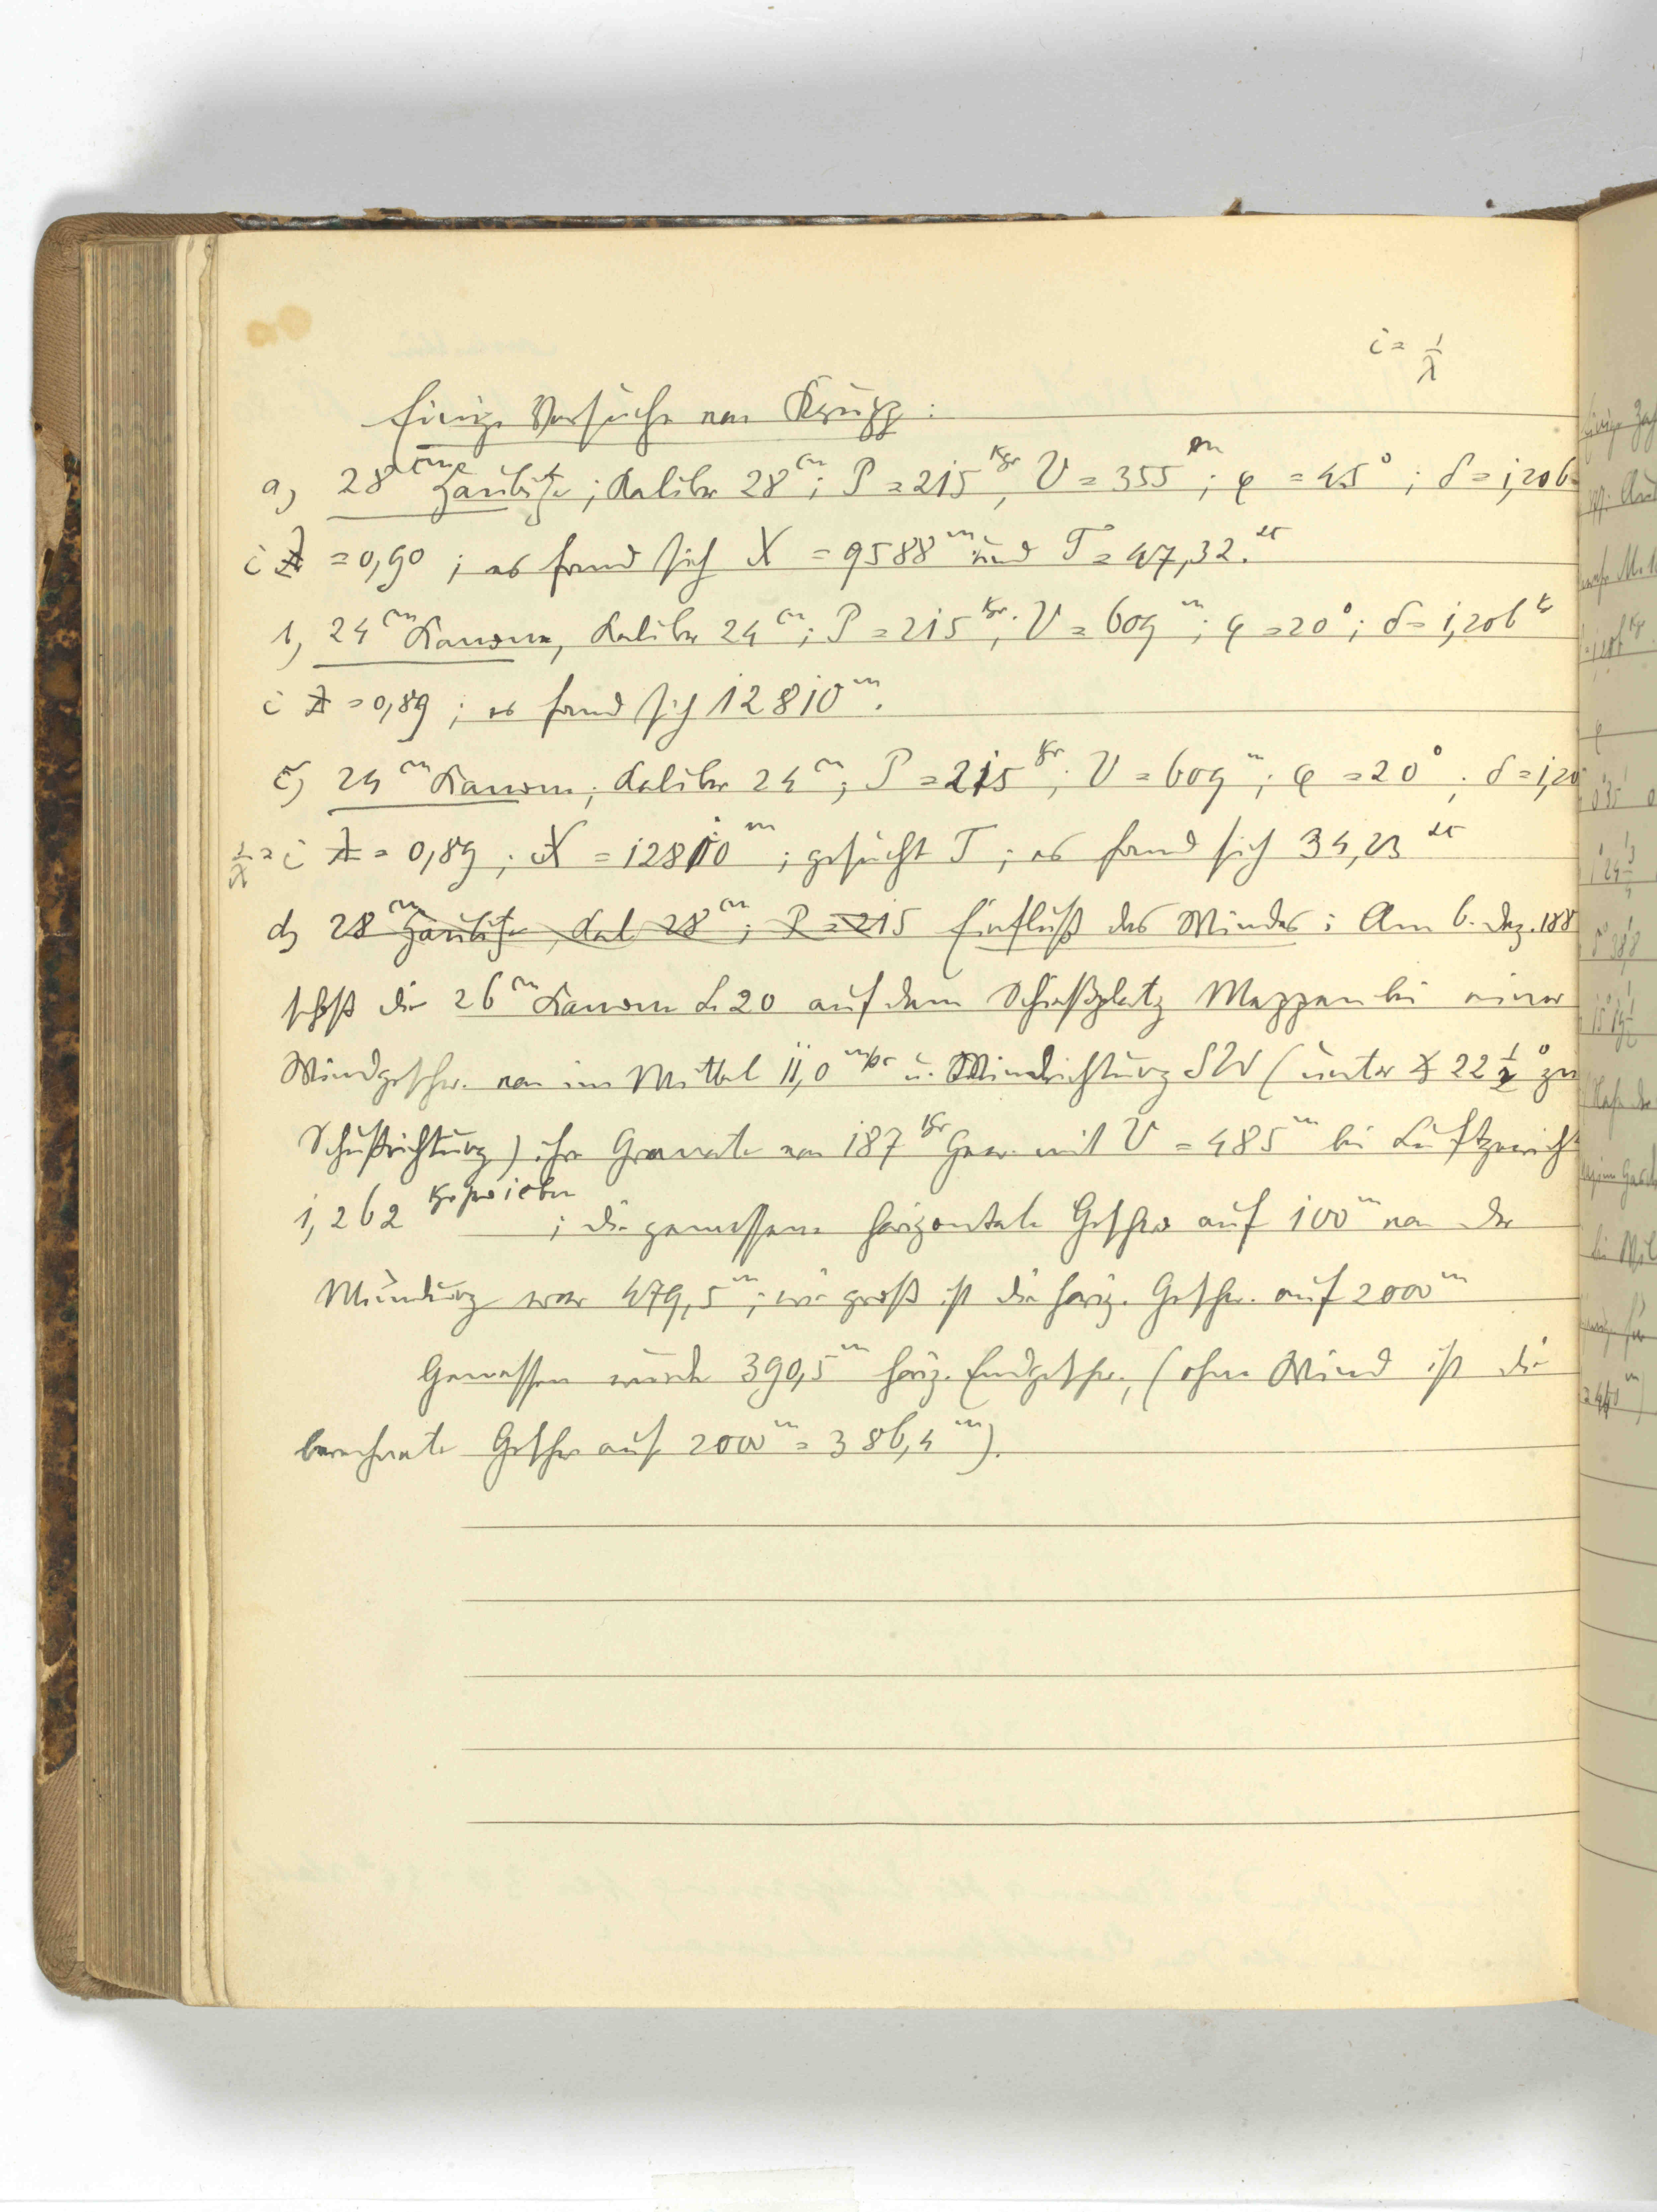 i = 1/λ
Einige Versuche von Krupp:
a) 28 cm Haubitze; Kaliber 28 cm; P = 215 Kgr, V = 355 m; φ = 45°; δ = 1,206
i = 0,90; es fand sich X = 9588 m und T = 47,32. sec
1) 24 cm Kanone, Kaliber 24 cm; P = 215 Kgr; V = 609 m; φ = 20°; δ = 1,206 k
i = 0,89; es fand sich 12810 m.
c) 24 cm Kanone; Kaliber 24 cm; P = 215 Kgr; V = 609 m; φ = 20°; δ = 1,20
1/λ = i = 0,89; X = 12810 m; gesucht T; es fand sich 34,23 sec
d) 28 cm Haubitze, Kal 28 cm; P = 215 Einfluß des Windes: Am 6. Dez. 188
schoß die 26 cm Kanone L 20 auf dem Schießplatz Meppen bei einer
Windgeschw. von im Mittel 11,0 m u. Windrichtung SW (unter ∢ 22 1/2° zu
Schußrichtung) ihre Granate von 187 Kgr Gew. mit V = 485 m bei Luftgewicht
1,262 Kgr pro cbm; die gemessene horizontale Geschw auf 100 m von der
Mündung war 479,5 m; wie groß ist die horiz. Geschw. auf 2000 m
Gemessen wurde 390,5 m horiz. Endgeschw., (ohne Wind ist die
berechnete Geschw auf 2000 m = 386,4 m).